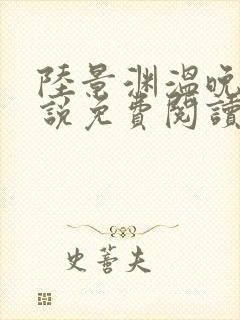 陸景渊溫晚
說免費閱讀
史蕾夫